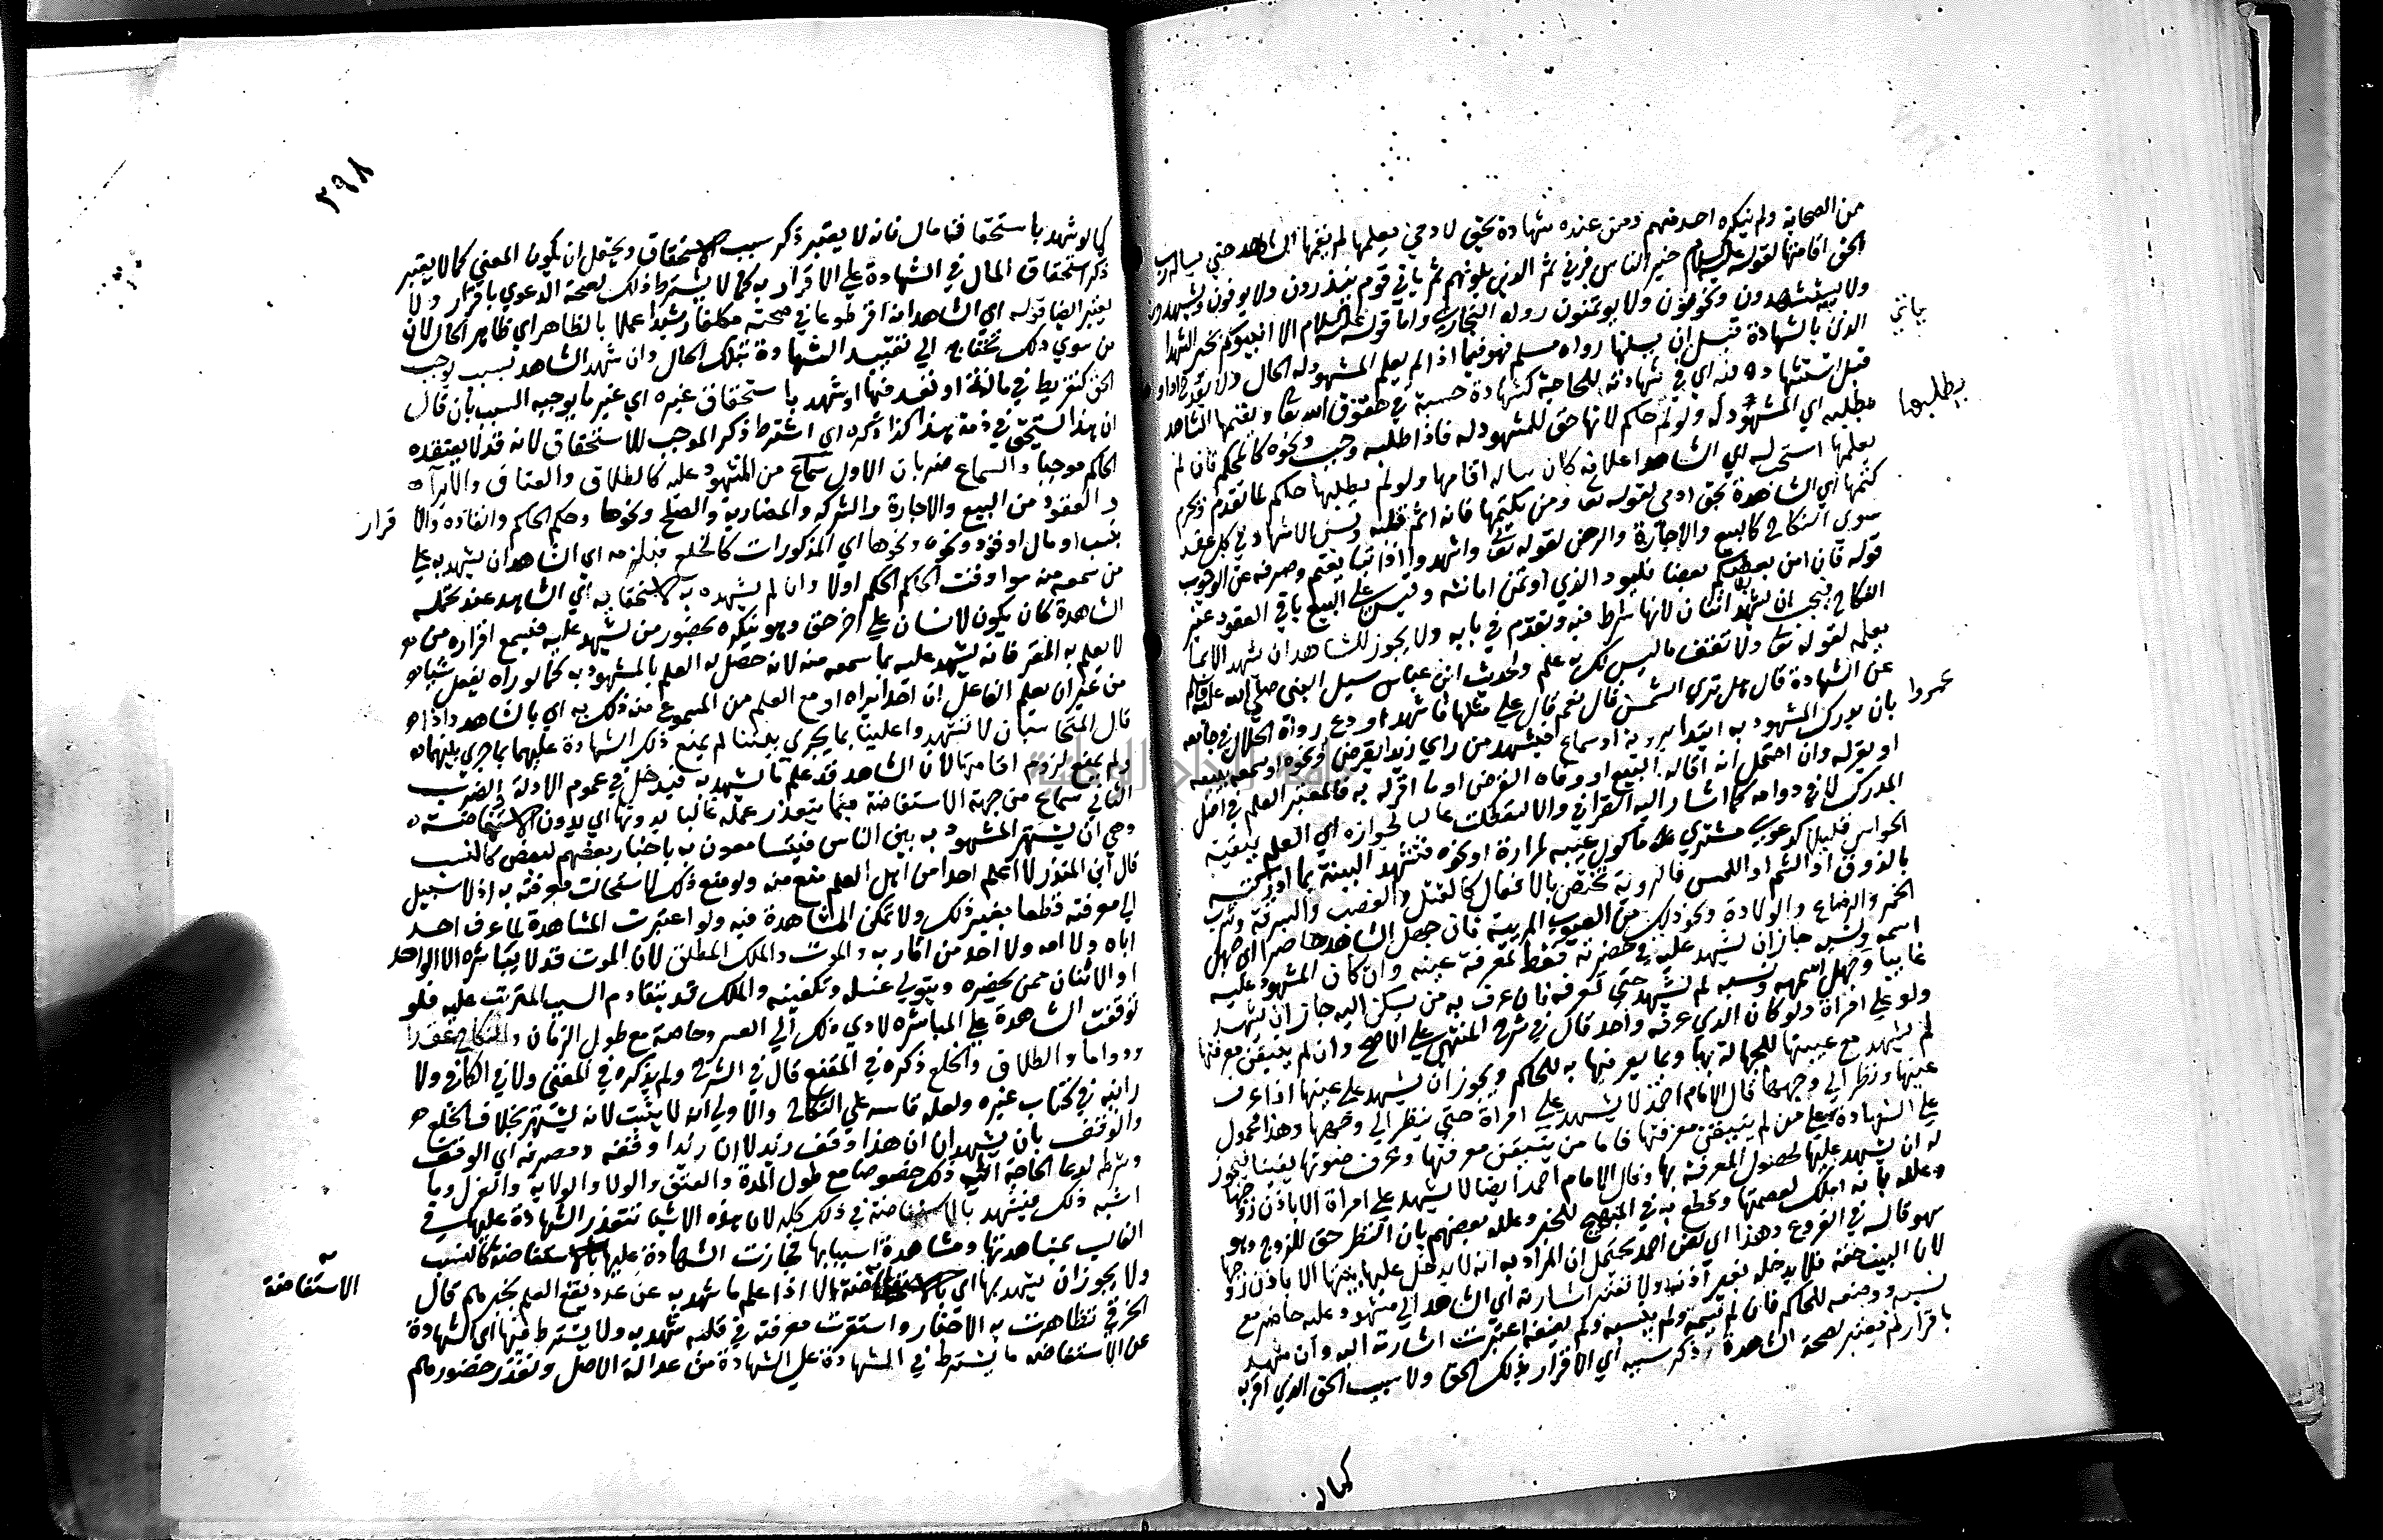 من الصحابة ولم ينكره احد منهم ومن عنده شهادة بحق لادمي يعلمها لم يقمها الشاهد حتى يساله رب
الحق اقامتها لقوله عليه السلام خير الناس قرني ثم الذين يلونهم ثم ياتي قوم ينذرون ولا يوفون ويشهدون
ولا يستشهدون ويخونون ولا يوتمنون رواه البخاري واما قوله عليه السلام الا انبيوكم بخير الشهدا
ياتي
الذي بالشهادة قبل ان يسلها رواه مسلم فهو فيما اذا لم يعلم المشهود له الحال ولا يقدح اداوه
قبل استشهاده فيه اي في شهادته للحاجة كشهادة حسبة في حقوق الله تعا ويقيمها الشاهد
يطلبها
بطلبه اي المشهود له ولو لم حاكم لانها حق للمشهود له فاذا طلبه وجب ونحوه كالمحكم فان لم
يعلمها استحب له اي الشاهد اعلامه كان ساله اقامها ولو لم يطلبها حاكم لما تقدم ويحرم
كتمها اي الشاهدة بحق ادمي لقوله تعا ومن يكتمها فانه اثم قلبه ويسن الاشهاد في كل عقد
سوى النكاح كالبيع والاجارة والرهن لقوله تعا واشهدوا اذا تبايعتم وصرفه عن الوجوب
قوله فان امن بعضكم بعضا فليود الذي اوتمن امانته وقيس على البيع باقي العقود غير
النكاح فيجب ان يشهد اثنان لانها شرط فيه وتقدم في بابه ولا يجوز للشاهد ان يشهد الا بما
يعلمه لقوله تعا ولا تقف ما ليس لك به علم ولحديث ابن عباس سيل النبي صلى الله عليه وسلم
عن الشهادة قال هل ترى الشمس قال نعم قال على مثلها فاشهد او دع رواه الخلال في جامعه
عمروا
بان يدرك المشهود به ابتدا برويه او سماع فيشهد من راي زيدا يقرض او نحوه او سمعه يبيعه
او يقر له وان احتمل انه اقاله البيع او وفاه القرض او ما اقر له به فالمعتبر العلم في اصل
المدرك لا في دوامه كما اشار اليه القرافي والا لتعطلت غالبا لجوازه اي العلم ببقية
الحواس قليلا كدعوى مشتري ماكول عيبه لمرارة او نحوه فتشهد البينة بما ادركته
بالذوق او الشم او اللمس فالروية تختص بالافعال كالقتل والغصب والسرقة وشرب
الخمر والرضاع والولادة ونحو ذلك من العيوب المريية فان جهل الشاهد حاضرا اي جهل
اسمه ونسبه جاز ان يشهد عليه في حضرته فقط لمعرفة عينه وان كان المشهود عليه
غايبا وجهل اسمه ونسبه لم يشهد حتى يعرفه فان عرف به من يسكن اليه جاز ان يشهد
ولو على امراة ولو كان الذي عرفه واحد قال في شرح المنتهى على الاصح وان لم يتيقن معرفتها
لم يشهد مع غيبتها للجهالة بها وبما يعرفها به للحاكم ويجوز ان يشهد على عينها اذا عرف
عينها ونظر الي وجهها قال الامام احمد لا يشهد على امراة حتى ينظر الي وجهها وهذا محمول
على الشهادة على من لم يتيقن معرفتها فاما من يتيقن معرفتها وعرف صوتها يقينا فيجوز
له ان يشهد عليها لحصول المعرفة بها وقال الامام احمد ايضا لا يشهد على امراة الا باذن زوجها
وعلله بانه املك لعصمتها وقطع به في المبهج للخبر وعلله بعضهم بان النظر حق للزوج وهو
سهو قاله في الفروع وهذا اي نص احمد يحتمل ان المراد به انه لا يدخل عليها بيتها الا باذن زوجها
لان البيت حقه فلا يدخله بغير اذنه ولا تعتبر اشارته اي الشاهد الي مشهود عليه حاضر مع
نسبه ووصفه للحاكم فان لم يسمه ولم ينسبه ولم يصفه اعتبرت اشارته اليه وان شهد
باقرار لم يعتبر لصحة الشاهدة ذكر سببه اي الاقرار بذلك الحق ولا سبب الحق الذي اقر به
كمالو
٢٩٨
كما لو شهد باستحقاق مال فانه لا يعتبر ذكر سبب الاستحقاق ويحتمل ان يكون المعني كما لا يعتبر
ذكر استحقاق المال في الشهادة على الاقرار به كما لا يشترط ذلك لصحة الدعوي باقرار ولا
يعتبر ايضا قوله اي الشاهد انه اقر طوعا في صحته مكلفا رشيدا عملا بالظاهر اي ظاهر الحال لان
من سوي ذلك يحتاج الي تقييد الشهادة بتلك الحال وان شهد الشاهد بسبب يوجب
الحق كتفريط في مانة او تعد فيها او شهد باستحقاق غيره اي غير ما يوجبه السبب بان قال
ان هذا يستحق في ذمة هذا كذا ذكره اي اشترط ذكر الموجب للاستحقاق لانه قد لا يعتقده
الحاكم موجبا والسماع ضربان الاول سماع من المشهود عليه كالطلاق والعتاق والابراء
والعقود من البيع والاجارة والشركه والمضاربه والصلح ونحوها وحكم الحاكم وانفاذه والا قرار
بنسب او مال او قود ونحوه ونحوها اي المذكورات كالخلع فيلزمه اي الشاهد ان يشهد به على
من سمعه منه سوا وقت الحاكم الحكم اولا وان لم يشهده به لاستخفايه اي الشاهد عند تحمله
الشاهدة كان يكون لانسان على اخر حق وهو ينكره بحضور من يشهد عليه فيسمع اقراره من
لا يعلم به المقر فانه يشهد عليه بما سمعه منه لانه حصل له العلم بالمشهود به كما لو راه يفعل شيا
من غير ان يعلم الفاعل ان احدا يراه او مع العلم من المسموع منه ذلك به اي بالشاهد واذا
قال المتحاسبان لا تشهدوا علينا بما يجري بيننا لم يمنع ذلك الشهادة عليهما بما جري بينهما
ولم يمنع لزوم اقامتها لان الشاهد قد علم ما يشهد به فيدخل في عموم الادلة والضرب
الثاني سماع من جهة الاستفاضة فيما يتعذر علمه غالبا بدونها اي بدون الاستفاضة
وهي ان يشتهر المشهود به بين الناس فيتسامعون به باخبار بعضهم لبعض كالنسب
قال ابن المنذر لا اعلم احدا من اهل العلم منع منه ولو منع ذلك لاستحالت معرفته به اذ لا سبيل
الي معرفته قطعا بغير ذلك ولا تمكن المشاهدة فيه ولو اعتبرت المشاهدة لما عرف احد
اباه ولا امه ولا احد من اقاربه والموت والملك المطلق لان الموت قد لا يباشره الا الواحد
او الاثنان ممن يحضره ويتولي غسله وتكفينه والملك قد يتقادم السبب المترتب عليه فلو
توقفت الشاهدة على المباشره لادي ذلك الي العسر وخاصة مع طول الزمان والنكاح عقدا
ودواما والطلاق والخلع ذكره في المقنع قال في الشرح ولم يذكره في المغني ولا في الكافي ولا
رايته في كتاب غيره ولعله قاسه على النكاح والاولي ان لا يثبت لانه يشتهر بخلاف الخلع
والوقف بان يشهد ان ان هذا وقف زيد لا ان زيدا وقفه ومصرفه اي الوقف
وشرطه لدعا الحاجة الي ذلك خصوصا مع طول المدة والعتق والولا والولاية والعزل وما
اشبه ذلك فيشهد بالاستفاضة في ذلك كله لان هذه الاشيا تتعذر الشهادة عليها في
الغالب بمشاهدتها ومشاهدة اسبابها فجازت الشهادة عليها بالاستفاضة كالنسب
الاستفاضة
ولا يجوز ان يشهد بها اي الا اذا علم ما شهد به عن عدد يقع العلم بخبرهم قال
الخرقي تظاهرت به الاخبار واستقرت معرفته في قلبه شهد به ولا يشترط فيها اي الشهادة
عن الاستفاضه ما يشترط في الشهادة على الشهادة من عدالة الاصل وتعذر حضورهم